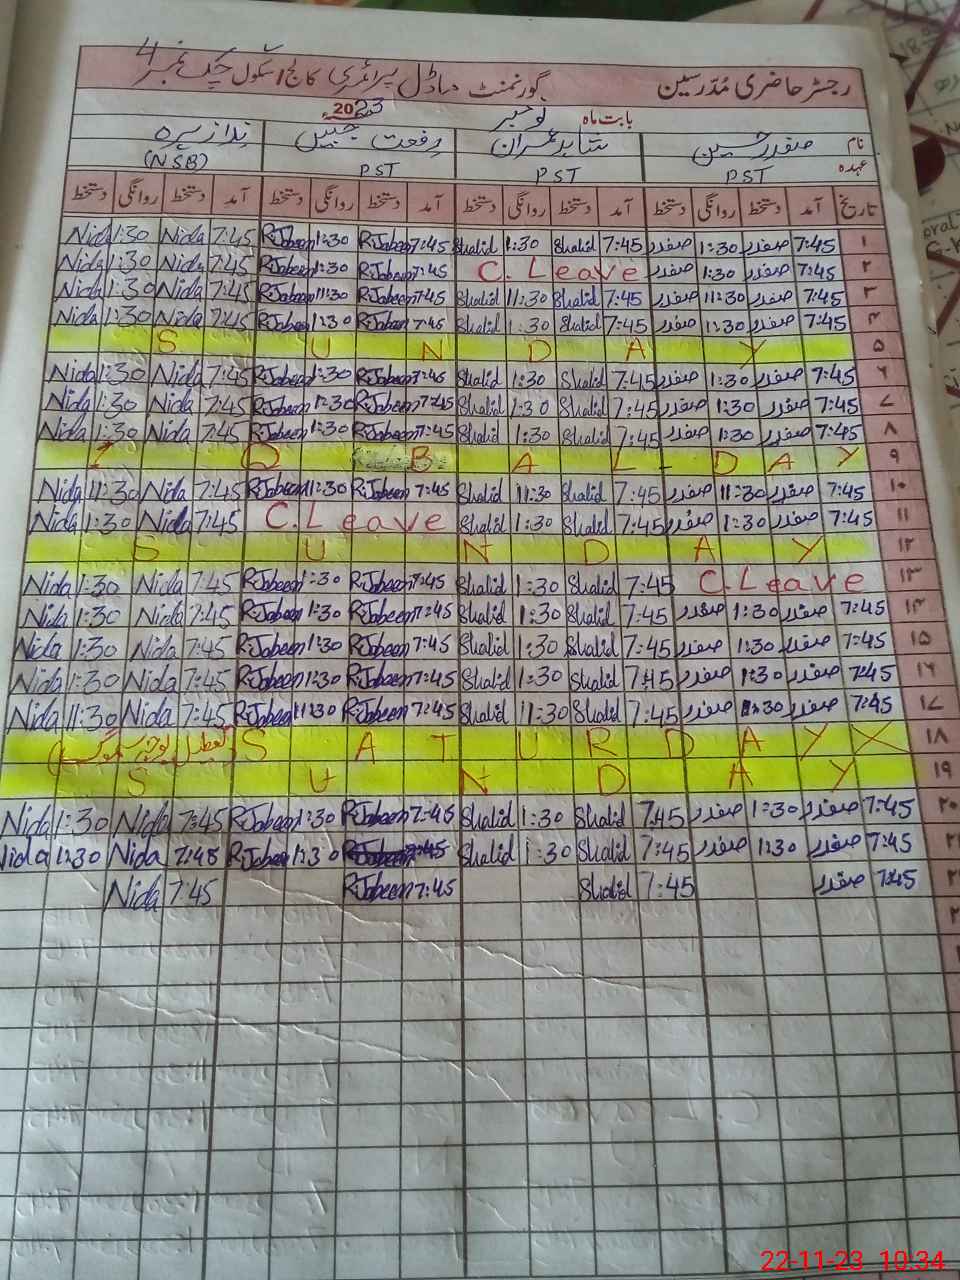 رجسٹر حاضری مُدرسین گورنمنٹ ماڈل پرائمری سکول چک نمبر 4
بابت ماہ نومبر 2023
نام صفدر حسین شاہد عمران رفعت جبین ندا زہرہ
عہدہ PST PST PST (NSB)
تاریخ آمد دستخط روانگی دستخط آمد دستخط روانگی دستخط آمد دستخط روانگی دستخط آمد دستخط روانگی دستخط
۱ 7:45 صفدر 1:30 صفدر 7:45 Shahid 1:30 Shahid 7:45 R.Jabeen 1:30 R.Jabeen 7:45 Nida 1:30 Nida
۲ 7:45 صفدر 1:30 صفدر C. Leave 7:45 R.Jabeen 1:30 R.Jabeen 7:45 Nida 1:30 Nida
۳ 7:45 صفدر 11:30 صفدر 7:45 Shahid 11:30 Shahid 7:45 R.Jabeen 11:30 R.Jabeen 7:45 Nida 1:30 Nida
۴ 7:45 صفدر 1:30 صفدر 7:45 Shahid 1:30 Shahid 7:45 R.Jabeen 1:30 R.Jabeen 7:45 Nida 1:30 Nida
۵ SUNDAY
۶ 7:45 صفدر 1:30 صفدر 7:45 Shahid 1:30 Shahid 7:45 R.Jabeen 1:30 R.Jabeen 7:45 Nida 1:30 Nida
۷ 7:45 صفدر 1:30 صفدر 7:45 Shahid 1:30 Shahid 7:45 R.Jabeen 1:30 R.Jabeen 7:45 Nida 1:30 Nida
۸ 7:45 صفدر 1:30 صفدر 7:45 Shahid 1:30 Shahid 7:45 R.Jabeen 1:30 R.Jabeen 7:45 Nida 1:30 Nida
۹ IQBAL-DAY
۱۰ 7:45 صفدر 11:30 صفدر 7:45 Shahid 11:30 Shahid 7:45 R.Jabeen 11:30 R.Jabeen 7:45 Nida 11:30 Nida
۱۱ 7:45 صفدر 1:30 صفدر 7:45 Shahid 1:30 Shahid C.Leave 7:45 Nida 1:30 Nida
۱۲ SUNDAY
۱۳ C.Leave 7:45 Shahid 1:30 Shahid 7:45 R.Jabeen 1:30 R.Jabeen 7:45 Nida 1:30 Nida
۱۴ 7:45 صفدر 1:30 صفدر 7:45 Shahid 1:30 Shahid 7:45 R.Jabeen 1:30 R.Jabeen 7:45 Nida 1:30 Nida
۱۵ 7:45 صفدر 1:30 صفدر 7:45 Shahid 1:30 Shahid 7:45 R.Jabeen 1:30 R.Jabeen 7:45 Nida 1:30 Nida
۱۶ 7:45 صفدر 1:30 صفدر 7:45 Shahid 1:30 Shahid 7:45 R.Jabeen 1:30 R.Jabeen 7:45 Nida 1:30 Nida
۱۷ 7:45 صفدر 11:30 صفدر 7:45 Shahid 11:30 Shahid 7:45 R.Jabeen 11:30 R.Jabeen 7:45 Nida 11:30 Nida
۱۸ SATURDAY (تعطیل بوجہ سموگ)
۱۹ SUNDAY
۲۰ 7:45 صفدر 1:30 صفدر 7:45 Shahid 1:30 Shahid 7:45 R.Jabeen 1:30 R.Jabeen 7:45 Nida 1:30 Nida
7:45 صفدر 1:30 صفدر 7:45 Shahid 1:30 Shahid 7:45 R.Jabeen 1:30 R.Jabeen 7:45 Nida 1:30 Nida
7:45 صفدر 7:45 Shahid 7:45 R.Jabeen 7:45 Nida
22-11-23 10:34